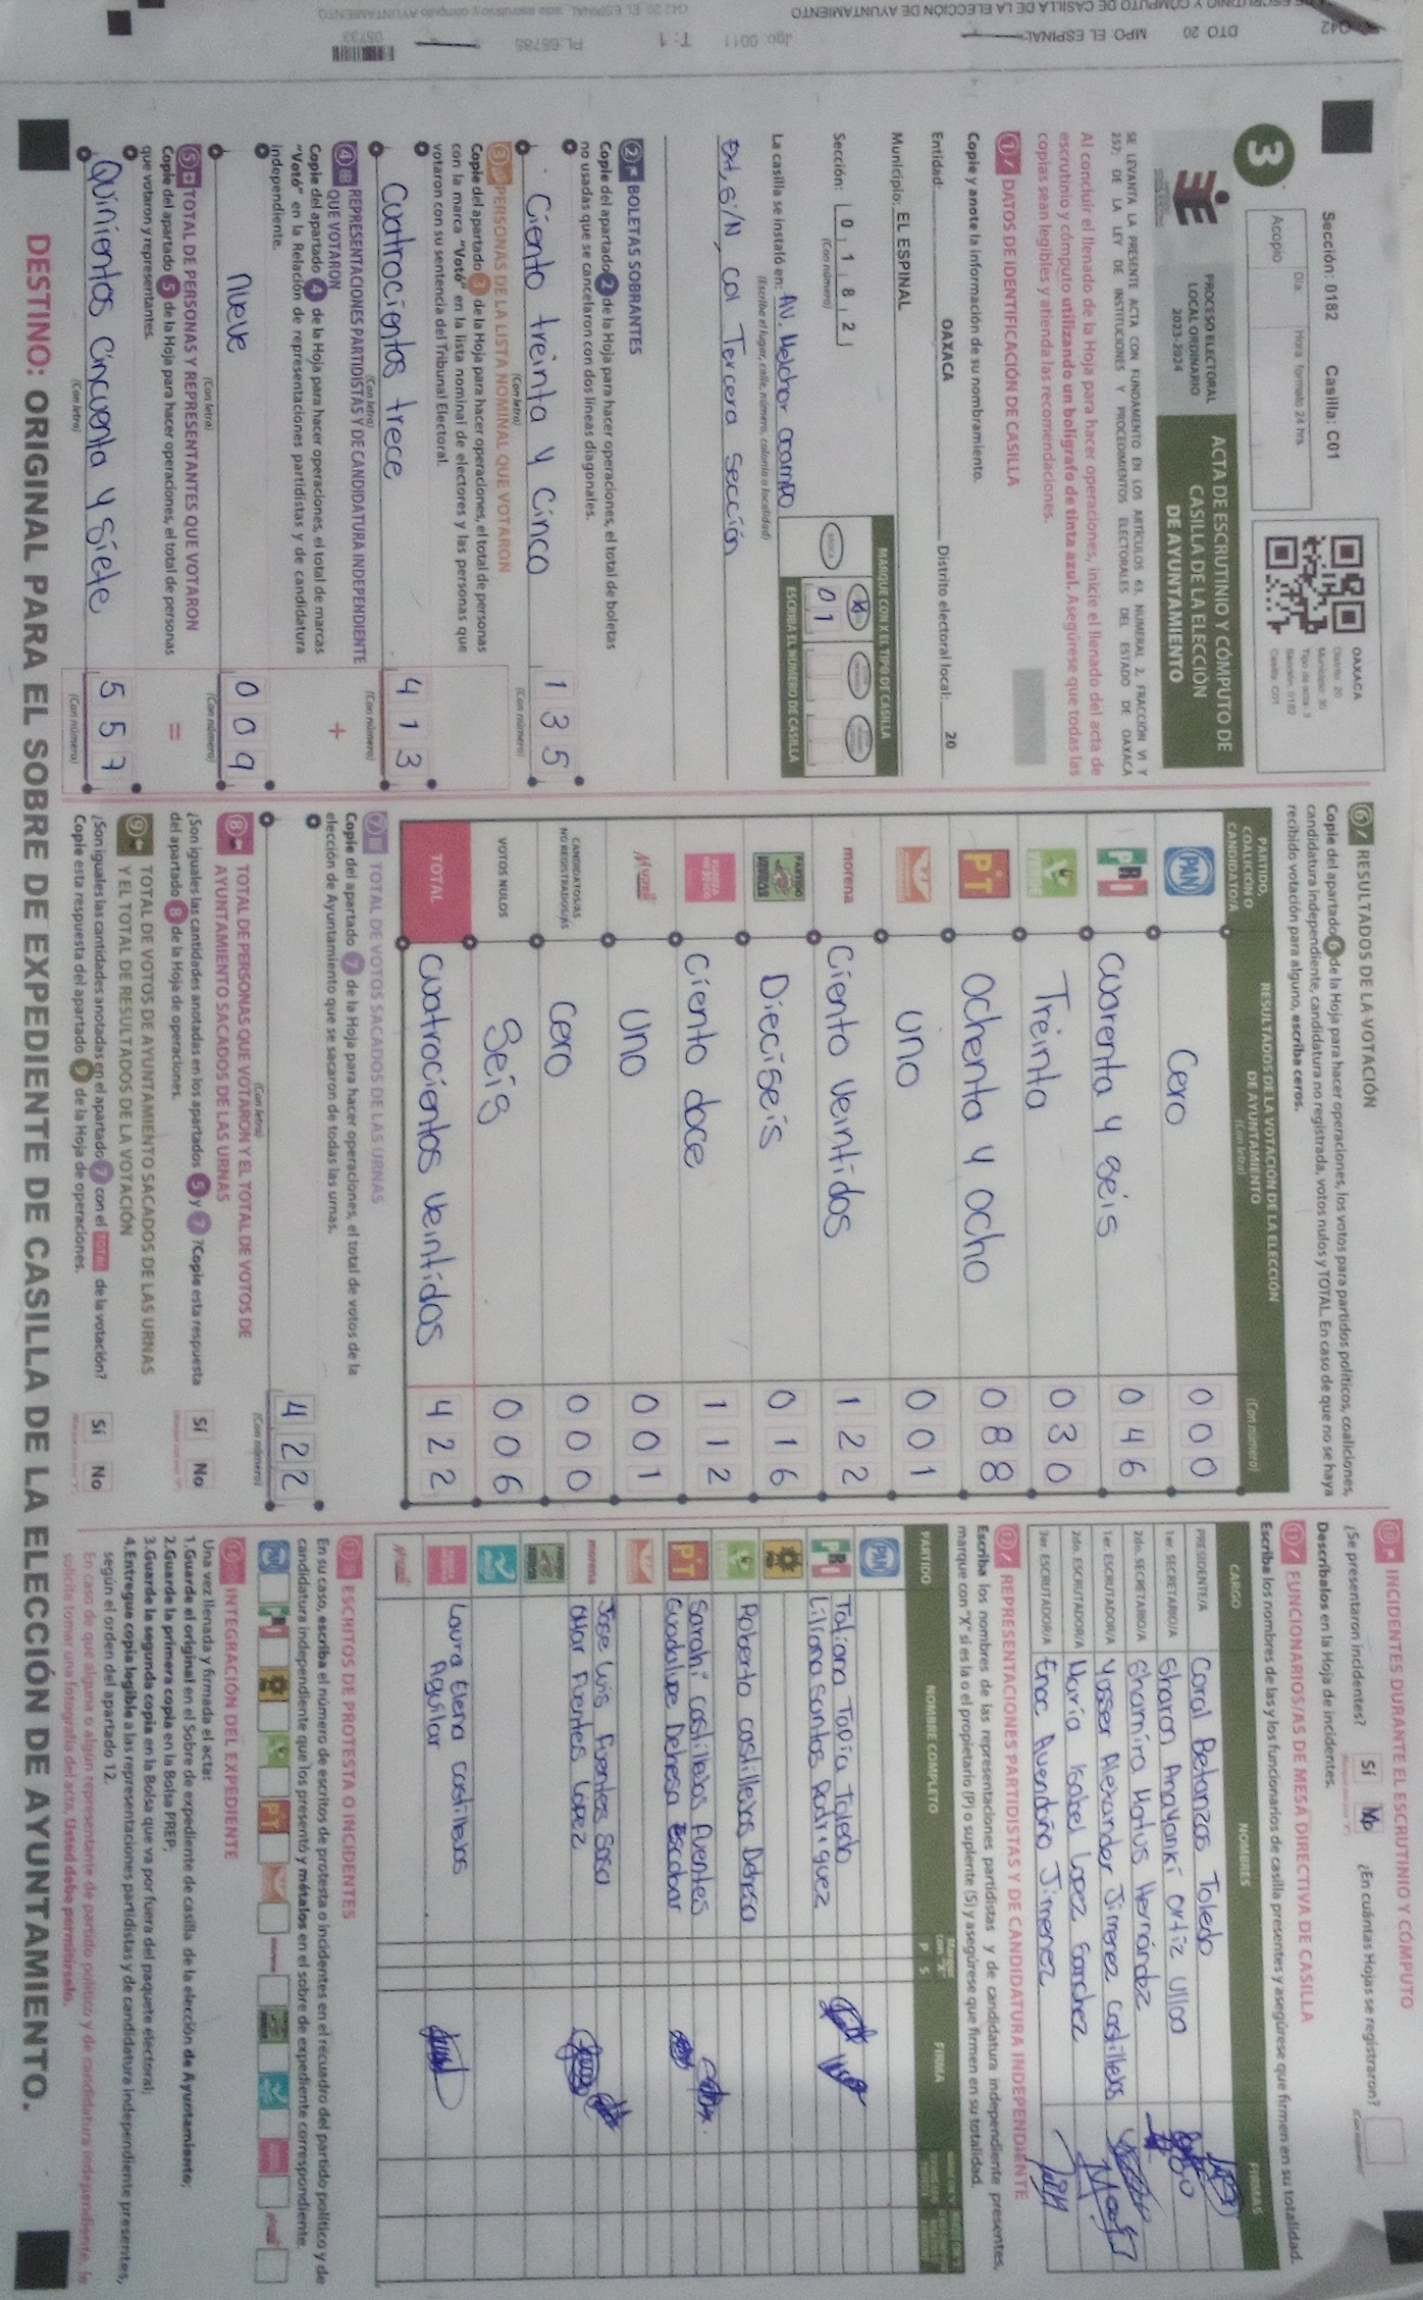 Sección: 0182 Casilla: C01
3
Acopio
Día:
Hora formato 24 hrs.
OAXACA
Distrito: 20
Municipio: 30
Tipo de acta: 3
Sección: 0182
Casilla: C01
PROCESO ELECTORAL
LOCAL ORDINARIO
2023-2024
ACTA DE ESCRUTINIO Y CÓMPUTO DE
CASILLA DE LA ELECCIÓN
DE AYUNTAMIENTO
SE LEVANTA LA PRESENTE ACTA CON FUNDAMENTO EN LOS ARTÍCULOS 63, NUMERAL 2, FRACCIÓN VI Y
257; DE LA LEY DE INSTITUCIONES Y PROCEDIMIENTOS ELECTORALES DEL ESTADO DE OAXACA
Al concluir el llenado de la Hoja para hacer operaciones, inicie el llenado del acta de
escrutinio y cómputo utilizando un bolígrafo de tinta azul. Asegúrese que todas las
copias sean legibles y atienda las recomendaciones.
1 DATOS DE IDENTIFICACIÓN DE CASILLA
Copie y anote la información de su nombramiento.
Entidad: OAXACA Distrito electoral local: 20
Municipio: EL ESPINAL
Sección: 0 1 8 2
(Con número)
MARQUE CON X EL TIPO DE CASILLA
BÁSICA
0 1
ESCRIBA EL NÚMERO DE CASILLA
La casilla se instaló en: AV. Melchor Ocampo
(Escriba el lugar, calle, número, colonia o localidad)
Ext, S/N, Col Tercera Sección
2 BOLETAS SOBRANTES
Copie del apartado 2 de la Hoja para hacer operaciones, el total de boletas
no usadas que se cancelaron con dos líneas diagonales.
Ciento treinta y cinco 1 3 5
(Con letra) (Con número)
3 PERSONAS DE LA LISTA NOMINAL QUE VOTARON
Copie del apartado 3 de la Hoja para hacer operaciones, el total de personas
con la marca "Votó" en la lista nominal de electores y las personas que
votaron con su sentencia del Tribunal Electoral.
Cuatrocientos trece 4 1 3
(Con letra) (Con número)
4 REPRESENTACIONES PARTIDISTAS Y DE CANDIDATURA INDEPENDIENTE
QUE VOTARON
+
Copie del apartado 4 de la Hoja para hacer operaciones, el total de marcas
"Votó" en la Relación de representaciones partidistas y de candidatura
independiente.
nueve 0 0 9
(Con letra) (Con número)
5 TOTAL DE PERSONAS Y REPRESENTANTES QUE VOTARON
=
Copie del apartado 5 de la Hoja para hacer operaciones, el total de personas
que votaron y representantes.
Quinientos cincuenta y siete 5 5 7
(Con letra) (Con número)
6 RESULTADOS DE LA VOTACIÓN
Copie del apartado 6 de la Hoja para hacer operaciones, los votos para partidos políticos, coaliciones,
candidatura independiente, candidatura no registrada, votos nulos y TOTAL. En caso de que no se haya
recibido votación para alguno, escriba ceros.
PARTIDO,
COALICIÓN O
CANDIDATO/A
RESULTADOS DE LA VOTACIÓN DE LA ELECCIÓN
DE AYUNTAMIENTO
(Con letra) (Con número)
PAN Cero 0 0 0
PRI Cuarenta y seis 0 4 6
VERDE Treinta 0 3 0
PT Ochenta y ocho 0 8 8
uno 0 0 1
morena Ciento veintidos 1 2 2
Dieciseis 0 1 6
Ciento doce 1 1 2
uno 0 0 1
CANDIDATOS/AS
NO REGISTRADOS/AS
Cero 0 0 0
VOTOS NULOS Seis 0 0 6
TOTAL Cuatrocientos veintidos 4 2 2
7 TOTAL DE VOTOS SACADOS DE LAS URNAS
Copie del apartado 7 de la Hoja para hacer operaciones, el total de votos de la
elección de Ayuntamiento que se sacaron de todas las urnas.
4 2 2
(Con letra) (Con número)
8 TOTAL DE PERSONAS QUE VOTARON Y EL TOTAL DE VOTOS DE
AYUNTAMIENTO SACADOS DE LAS URNAS
¿Son iguales las cantidades anotadas en los apartados 5 y 7? Copie esta respuesta
del apartado 8 de la Hoja de operaciones.
Sí No
9 TOTAL DE VOTOS DE AYUNTAMIENTO SACADOS DE LAS URNAS
Y EL TOTAL DE RESULTADOS DE LA VOTACIÓN
¿Son iguales las cantidades anotadas en el apartado 7 con el TOTAL de la votación?
Copie esta respuesta del apartado 9 de la Hoja de operaciones.
Sí No
10 INCIDENTES DURANTE EL ESCRUTINIO Y CÓMPUTO
¿Se presentaron incidentes? Sí No ¿En cuántas Hojas se registraron?
Descríbalos en la Hoja de incidentes.
11 FUNCIONARIOS/AS DE MESA DIRECTIVA DE CASILLA
Escriba los nombres de las y los funcionarios de casilla presentes y asegúrese que firmen en su totalidad.
CARGO NOMBRES FIRMAS
PRESIDENTE/A Coral Betanzos Toledo
1er. SECRETARIO/A Sharon Anayanki Ortiz Ulloa
2do. SECRETARIO/A Shamira Matus Hernández
1er. ESCRUTADOR/A Yosser Alexander Jimenez Castillejos
2do. ESCRUTADOR/A María Isabel Lopez Sanchez
3er. ESCRUTADOR/A Enoc Avendaño Jimenez
12 REPRESENTACIONES PARTIDISTAS Y DE CANDIDATURA INDEPENDIENTE
Escriba los nombres de las representaciones partidistas y de candidatura independiente presentes,
marque con "X" si es la o el propietario (P) o suplente (S) y asegúrese que firmen en su totalidad.
PARTIDO NOMBRE COMPLETO P S FIRMA
PAN
PRI Tatiana Tapia Toledo
Liliana Santos Rodriguez
PRD
VERDE Roberto Castillejos Dehesa
PT Sarahi Castillejos Fuentes
Guadalupe Dehesa Escobar
morena Jose Luis Fuentes Sosa
Omar Fuentes Lopez
Laura Elena Castillejos
Aguilar
13 ESCRITOS DE PROTESTA O INCIDENTES
En su caso, escriba el número de escritos de protesta o incidentes en el recuadro del partido político y de
candidatura independiente que los presentó y métalos en el sobre de expediente correspondiente.
14 INTEGRACIÓN DEL EXPEDIENTE
Una vez llenada y firmada el acta:
1. Guarde el original en el Sobre de expediente de casilla de la elección de Ayuntamiento;
2. Guarde la primera copia en la Bolsa PREP;
3. Guarde la segunda copia en la Bolsa que va por fuera del paquete electoral;
4. Entregue copia legible a las representaciones partidistas y de candidatura independiente presentes,
según el orden del apartado 12.
En caso de que alguna o algún representante de partido político y de candidatura independiente, le
solicite tomar una fotografía del acta, Usted debe permitírselo.
DESTINO: ORIGINAL PARA EL SOBRE DE EXPEDIENTE DE CASILLA DE LA ELECCIÓN DE AYUNTAMIENTO.
DTO 20 MPO. EL ESPINAL